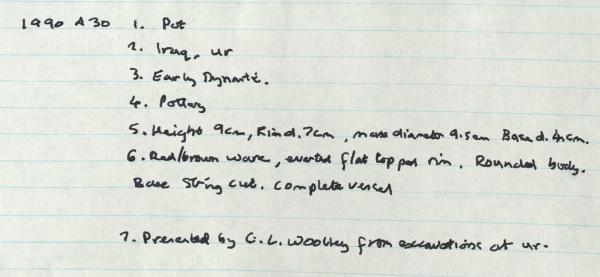 1990 A30 1. Pot
2. Iraq, ur
3. Early Dynastic.
4. Pottery
5. Height 9cm, Rim d. 7cm, max diameter 9.5cm Base d. 4cm.
6. Red/brown ware, everted flat topped rim. Rounded body.
Base string cut. Complete vessel
7. Presented by C. L. Woolley from excavations at ur.